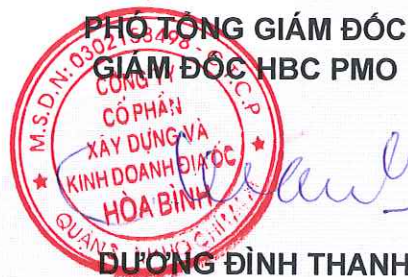 PHÓ TỔNG GIÁM ĐỐC
GIÁM ĐỐC HBC PMO
M.S.D.N: 0302158498 - C.T.C.P
CÔNG TY
CỔ PHẦN
XÂY DỰNG VÀ
KINH DOANH ĐỊA ỐC
HÒA BÌNH
QUẬN
DƯƠNG ĐÌNH THANH